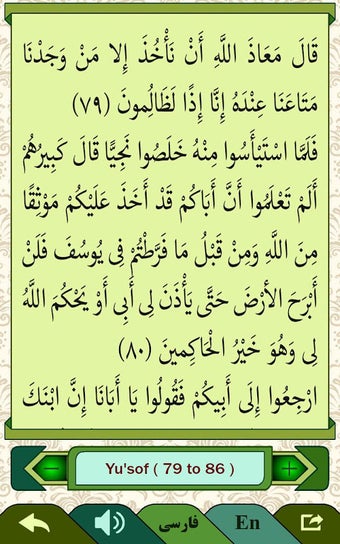 قَالَ مَعَاذَ اللَّهِ أَنْ نَأْخُذَ إِلا مَنْ وَجَدْنَا
مَتَاعَنَا عِنْدَهُ إِنَّا إِذًا لَظَالِمونَ (٧٩)
فَلَمَّا اسْتَيْأَسُوا مِنْهُ خَلَصُوا نَجِيًّا قَالَ كَبِيرُهُمْ
أَلَمْ تَعْلَمُوا أَنَّ أَبَاكُمْ قَدْ أَخَذَ عَلَيْكُمْ مَوْثِقًا
مِنَ اللَّهِ وَمِنْ قَبْلُ مَا فَرَّطْتُمْ فِي يُوسُفَ فَلَنْ
أَبْرَحَ الأرْضَ حَتَّى يَأْذَنَ لِي أَبِي أَوْ يَحْكُمَ اللَّهُ
لِي وَهُوَ خَيْرُ الْحَاكِمِينَ (٨٠)
ارْجِعُوا إِلَى أَبِيكُمْ فَقُولُوا يَا أَبَانَا إِنَّ ابْنَكَ
Yu'sof ( 79 to 86 )
فارسی
En